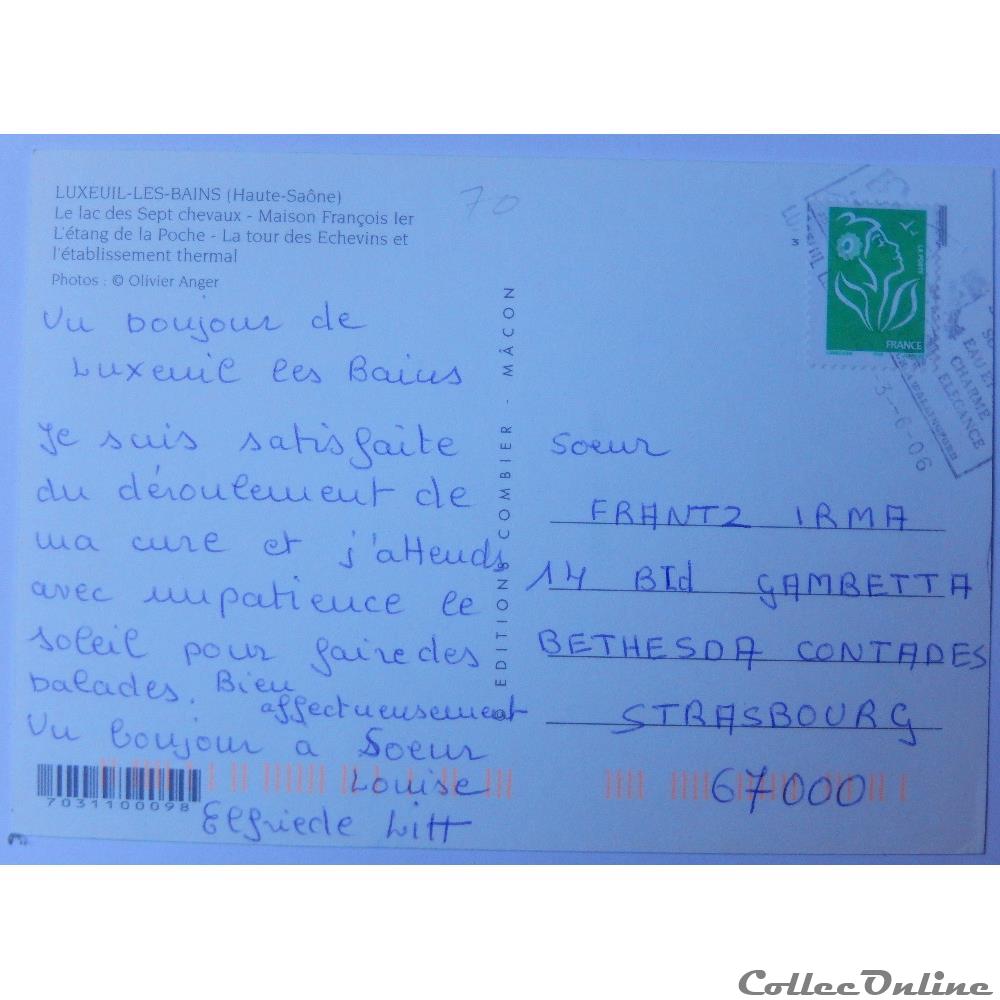 LUXEUIL-LES-BAINS (Haute-Saône)
Le lac des Sept chevaux - Maison François Ier
L'étang de la Poche - La tour des Echevins et
l'établissement thermal
Photos : © Olivier Anger
70
Un bonjour de
Luxeuil les Bains
Je suis satisfaite
du déroulement de
ma cure et j'attends
avec impatience le
soleil pour faire des
balades. Bien
affectueusement
Un bonjour a Soeur
Louise
Elfriede Litt
7031100098
© EDITIONS COMBIER - MÂCON
LA POSTE
FRANCE
EAU ET
CHARME
ELEGANCE
3-6-06
Soeur
FRANTZ IRMA
14 Bld GAMBETTA
BETHESDA CONTADES
STRASBOURG
67000
CollecOnline